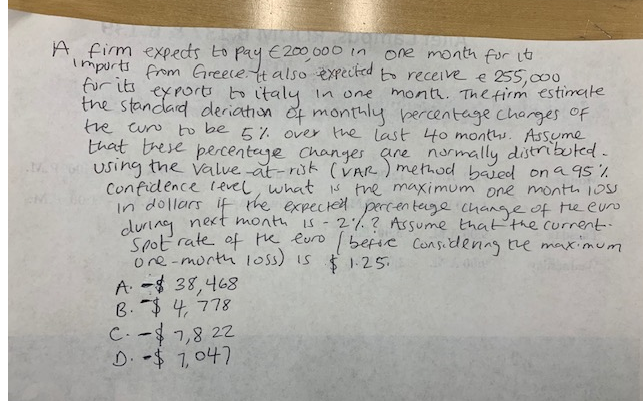 A firm expects to pay €200,000 in one month for its
imports from Greece. It also expected to receive € 255,000
for its exports to italy in one month. The firm estimate
the standard deviation of monthly percentage changes of
the euro to be 5% over the last 40 months. Assume
that these percentage changes are normally distributed.
Using the Value-at-risk (VAR) method based on a 95%
confidence level, what is the maximum one month loss
in dollars if the expected percentage change of the euro
during next month is -2%? Assume that the current
Spot rate of the euro (before considering the maximum
one-month loss) is $ 1.25.
A. -$ 38,468
B. -$ 4,778
C. -$ 7,822
D. -$ 7,047